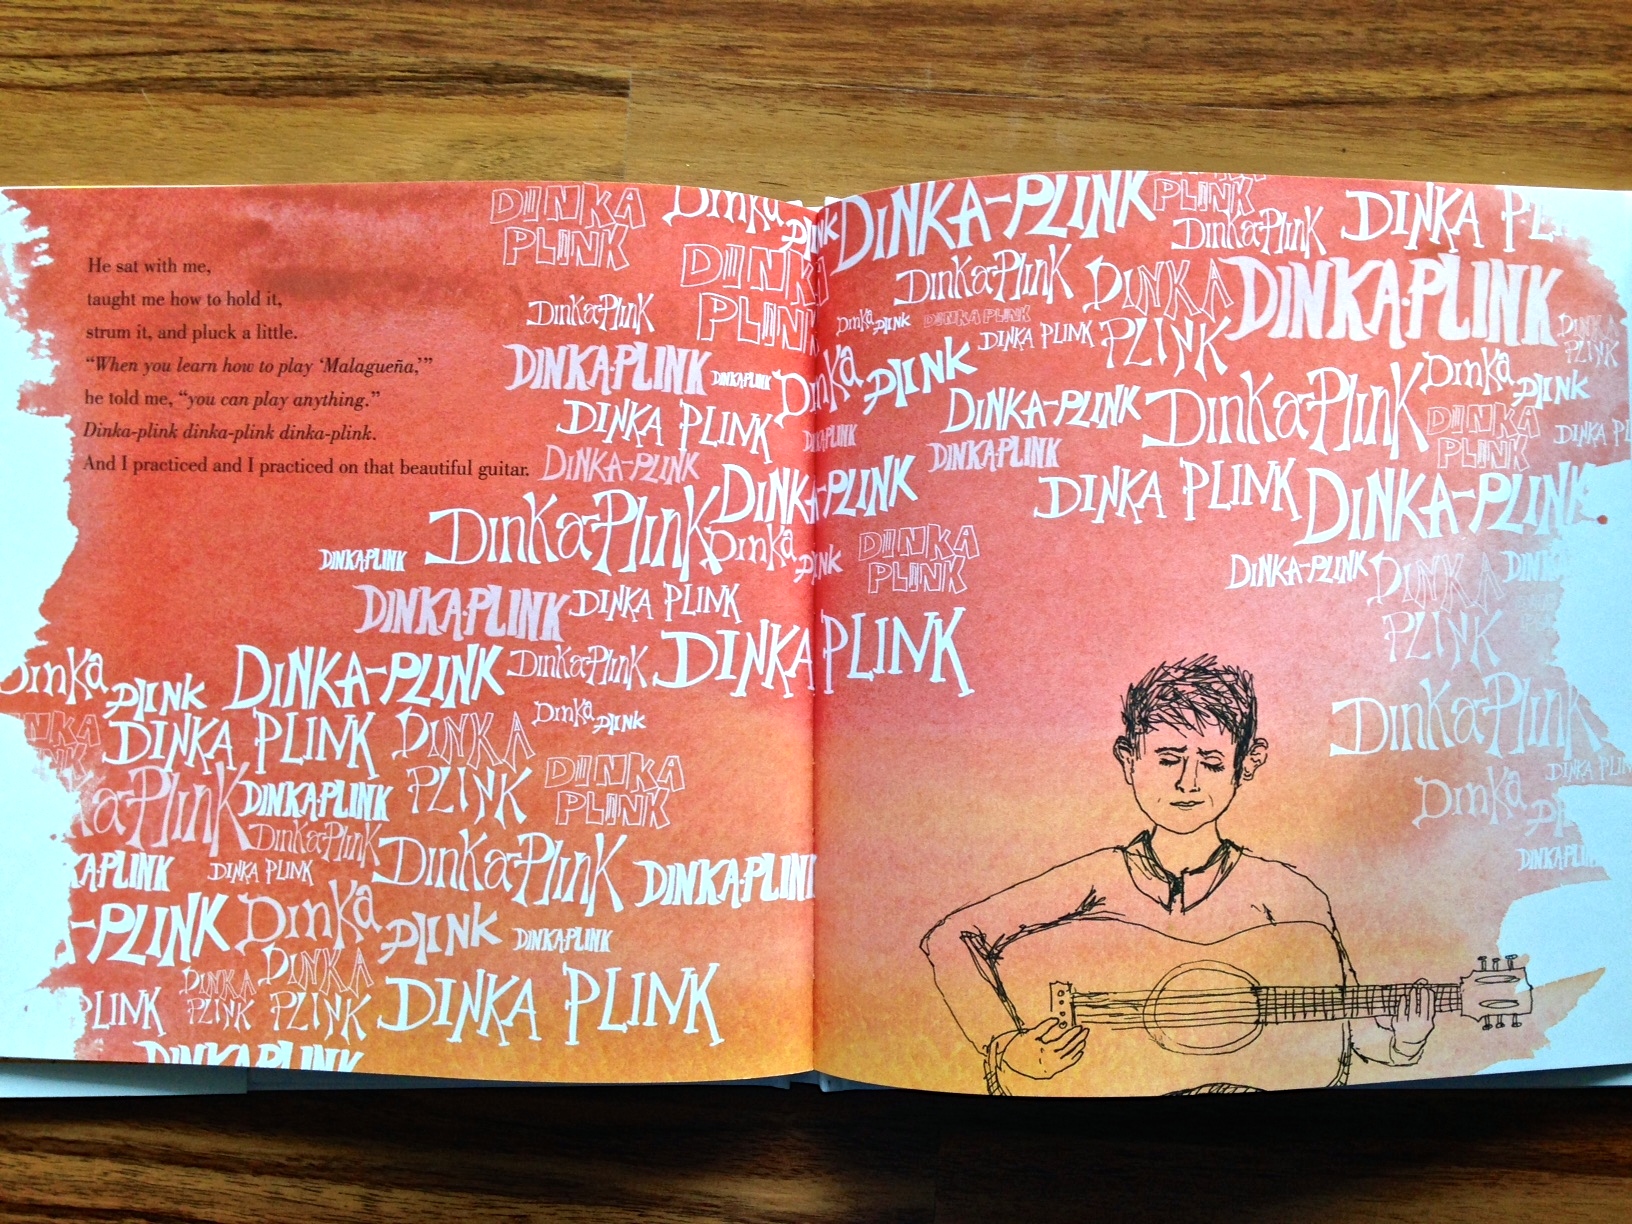 He sat with me,
taught me how to hold it,
strum it, and pluck a little.
“When you learn how to play ‘Malagueña,’”
he told me, “you can play anything.”
Dinka-plink dinka-plink dinka-plink.
And I practiced and I practiced on that beautiful guitar.
DINKA
PLINK
Dinka
DINKA
PLINK
Dinka-Plink
DINKA-PLINK
DINKA-PLINK
Dinka
DINKA PLINK
DINKA-PLINK
DINKA-PLINK
Dinka-Plink
Dinka
DINKA-PLINK
DINKA-PLINK
DINKA PLINK
DINKA PLINK
Dinka-Plink
DINKA-PLINK
Dinka
plink
DINKA PLINK
DINKA
PLINK
Dinka
plink
DINKA
PLINK
DINKA-PLINK
Dinka-Plink
Dinka-Plink
DINKA PLINK
DINKA-PLINK
-PLINK
Dinka
plink
DINKA-PLINK
DINKA
PLINK
DINKA
PLINK
PLINK
DINKA PLINK
DINKA-PLINK
DINKA-PLINK
DINKA
PLINK
Dinka-Plink
DINKA PL
Dinka-Plink
DINKA
PLINK
DINKA-PLINK
Dinka
plink
DINKA PLINK
DINKA PLINK
DINKA
PLINK
plink
Dinka
plink
DINKA-PLINK
Dinka-Plink
DINKA
PLINK
DINKA-PLINK
DINKA PLINK
DINKA-PLINK
DINKA
PLINK
DINKA-PLINK
DINKA
PLINK
DINKA
Dinka-Plink
DINKA PLIN
Dinka
DINKA-PLIN